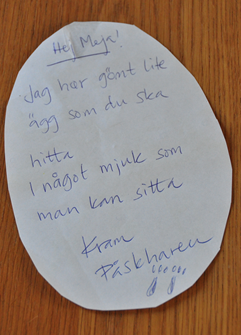 Hej Maja!
Jag har gömt lite
ägg som du ska
hitta
I något mjuk som
man kan sitta
Kram
Påskharen